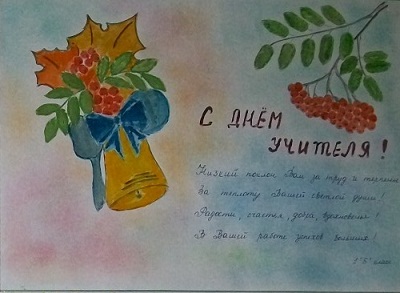 С ДНЁМ
УЧИТЕЛЯ!
Низкий поклон Вам за труд и терпение
За теплоту Вашей светлой души!
Радости, счастья, добра, вдохновенья!
В Вашей работе успехов больших!
"В" класс